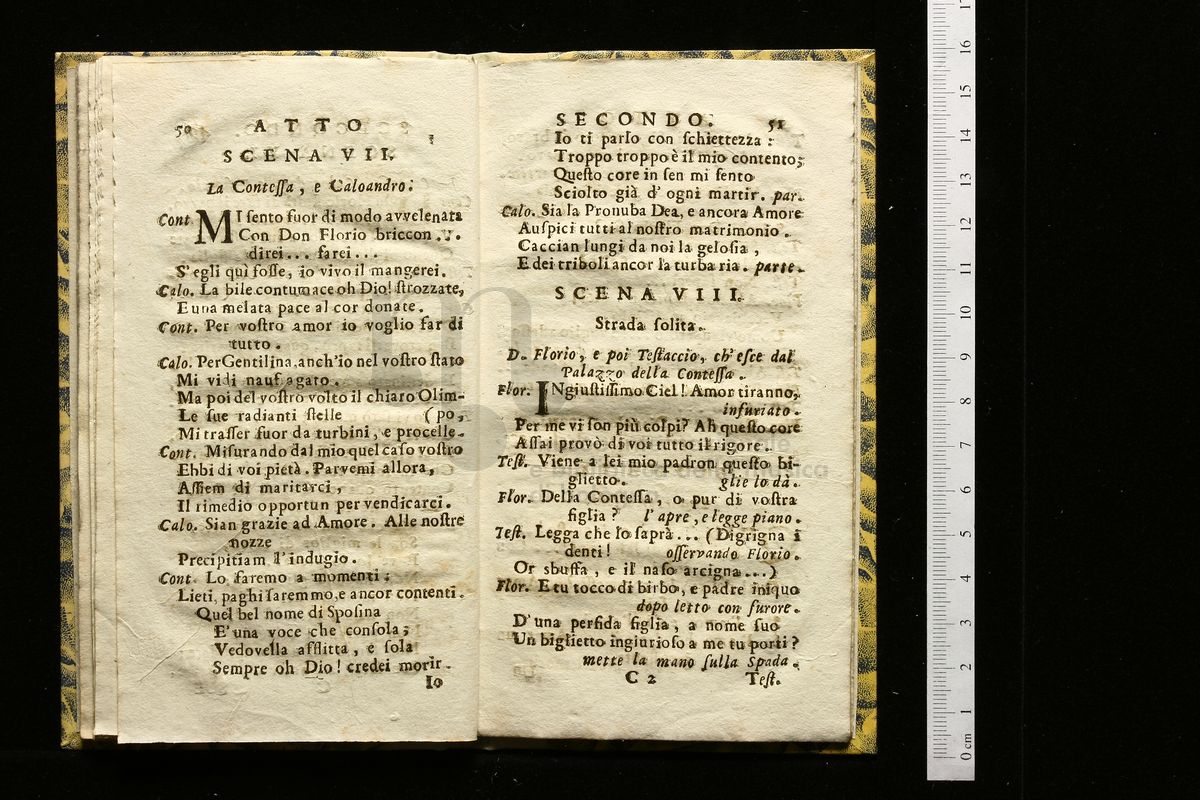 50 ATTO
SCENA VII.
La Contessa, e Caloandro.
Cont. MI sento fuor di modo avvelenata
Con Don Florio briccon ...
direi... farei...
S'egli quì fosse, io vivo il mangerei.
Calo. La bile contumace oh Dio! strozzate,
E una melata pace al cor donate.
Cont. Per vostro amor io voglio far di
tutto.
Calo. Per Gentilina anch'io nel vostro stato
Mi vidi naufragato.
Ma poi del vostro volto il chiaro Olim-
Le sue radianti stelle (po,
Mi trasser fuor da turbini, e procelle.
Cont. Misurando dal mio quel caso vostro
Ebbi di voi pietà. Parvemi allora,
Assiem di maritarci,
Il rimedio opportun per vendicarci.
Calo. Sian grazie ad Amore. Alle nostre
nozze
Precipitiam l'indugio.
Cont. Lo faremo a momenti:
Lieti, paghi saremmo, e ancor contenti.
Quel bel nome di Sposina
E' una voce che consola;
Vedovella afflitta, e sola
Sempre oh Dio! credei morir.
Io
SECONDO. 51
Io ti parlo con schiettezza:
Troppo troppo è il mio contento;
Questo core in sen mi sento
Sciolto già d'ogni martir. par.
Calo. Sia la Pronuba Dea, e ancora Amore
Auspici tutti al nostro matrimonio.
Caccian lungi da noi la gelosia,
E dei triboli ancor la turba ria. parte.
SCENA VIII.
Strada solita.
D. Florio, e poi Testaccio, ch'esce dal
Palazzo della Contessa.
Flor. INgiustissimo Ciel! Amor tiranno,
infuriato.
Per me vi son più colpi? Ah questo core
Assai provò di voi tutto il rigore.
Test. Viene a lei mio padron questo bi-
glietto. glie lo dà.
Flor. Della Contessa, o pur di vostra
figlia? l'apre, e legge piano.
Test. Legga che lo saprà... (Digrigna i
denti! osservando Florio.
Or sbuffa, e il naso arcigna...)
Flor. E tu tocco di birbo, e padre iniquo
dopo letto con furore.
D'una perfida figlia, a nome suo
Un biglietto ingiurioso a me tu porti?
mette la mano sulla Spada.
C 2 Test.
0 cm 1 2 3 4 5 6 7 8 9 10 11 12 13 14 15 16 17